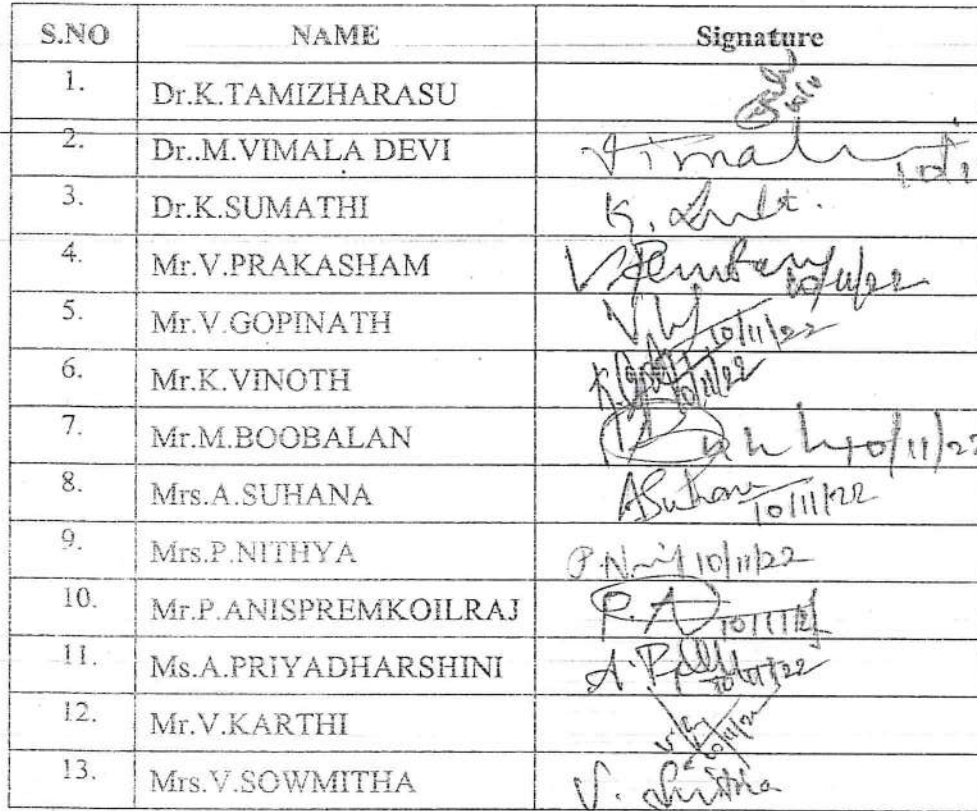 S.NO NAME Signature
1. Dr.K.TAMIZHARASU
2. Dr..M.VIMALA DEVI Vimala
3. Dr.K.SUMATHI K.
4. Mr.V.PRAKASHAM 10/11/22
5. Mr.V.GOPINATH 10/11/22
6. Mr.K.VINOTH 10/11/22
7. Mr.M.BOOBALAN 10/11/22
8. Mrs.A.SUHANA A.Suhana 10/11/22
9. Mrs.P.NITHYA P.Ni 10/11/22
10. Mr.P.ANISPREMKOILRAJ P.A
11. Ms.A.PRIYADHARSHINI 10/11/22
12. Mr.V.KARTHI 10/11/22
13. Mrs.V.SOWMITHA V.